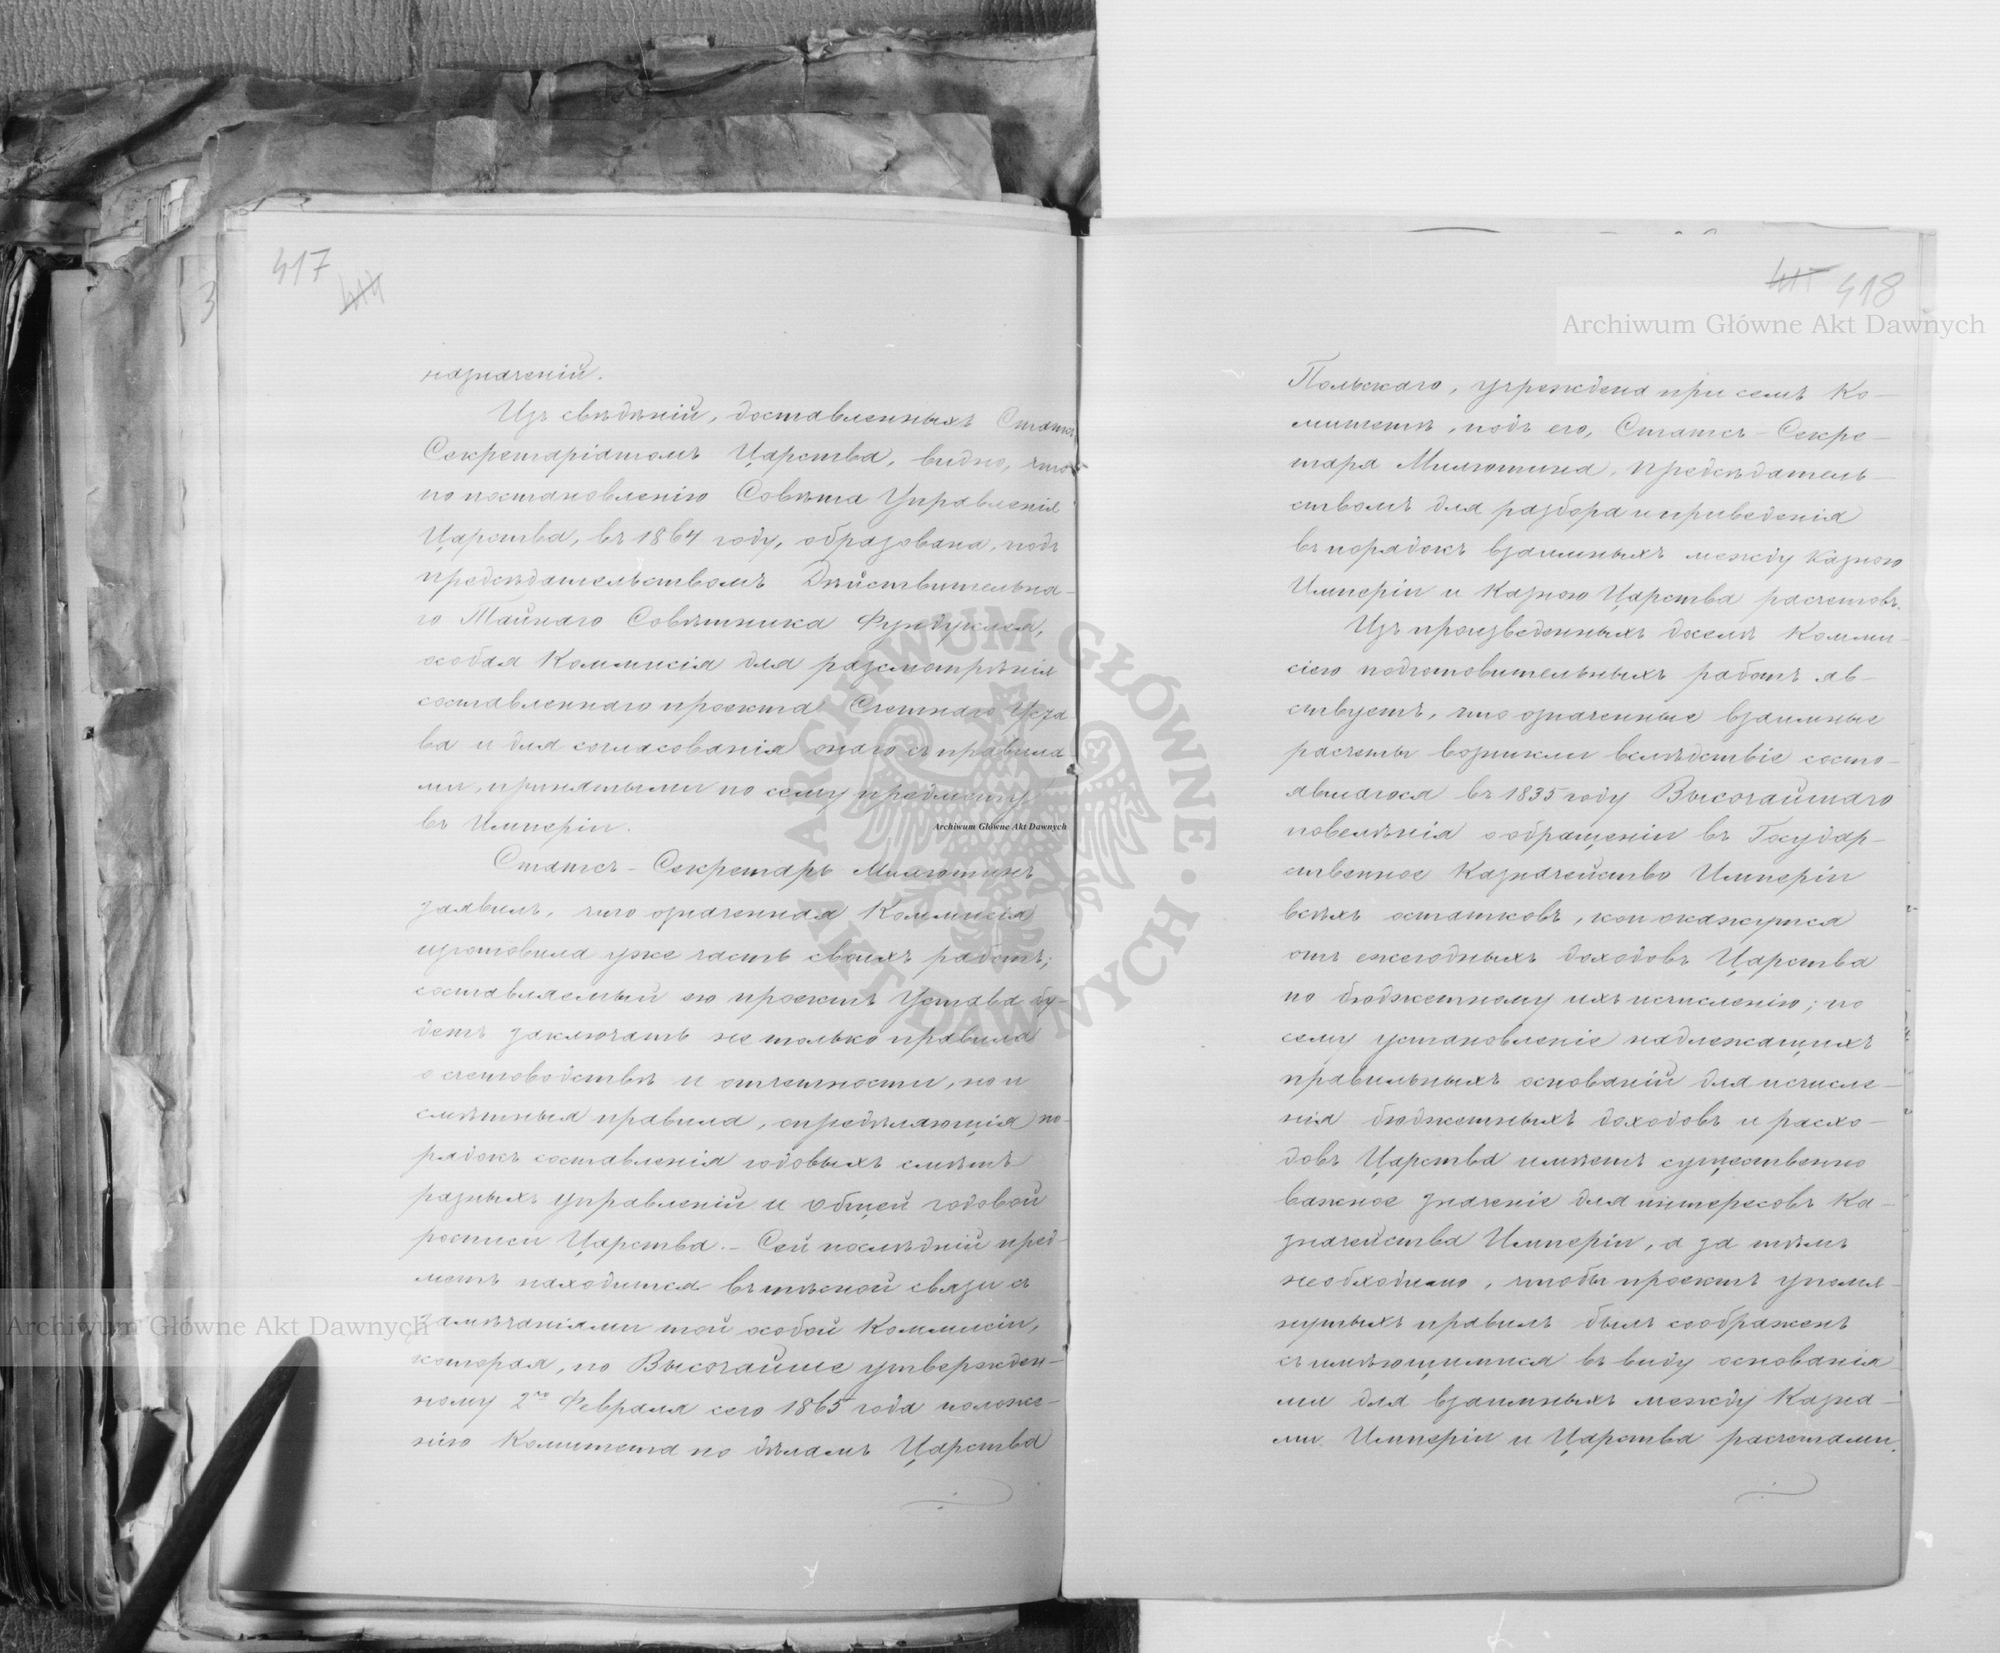 417
414
назначеній.
Изъ свѣдѣній, доставленныхъ Статсъ
Секретаріатомъ Царства, видно, что
по постановленію Совѣта Управленія
Царства, въ 1864 году, образована, подъ
предсѣдательствомъ Дѣйствительна-
го Тайнаго Совѣтника Фундуклея,
особая Коммисія для разсмотрѣнія
составленнаго проекта Счетнаго Уста
ва и для согласованія онаго съ правила
ми, принятыми по сему предмету
въ Имперіи.
Статсъ-Секретарь Милютинъ
заявилъ, что означенная Коммисія
изготовила уже часть своихъ работъ;
составляемый ею проектъ Устава бу-
детъ заключать не только правила
о счетоводствѣ и отчетности, но и
смѣтныя правила, опредѣляющія по-
рядокъ составленія годовыхъ смѣтъ
разныхъ управленій и общей годовой
росписи Царства.- Сей послѣдній пред-
метъ находится въ тѣсной связи съ
замѣчаніями той особой Коммисіи,
которая, по Высочайше утвержден-
ному 2го Февраля сего 1865 года положе-
нію Комитета по дѣламъ Царства
415 418
Польскаго, учреждена при семъ Ко-
митетѣ, подъ его, Статсъ-Секре-
таря Милютина, предсѣдатель-
ствомъ для разбора и приведенія
въ порядокъ взаимныхъ между Казною
Имперіи и Казною Царства расчетовъ.
Изъ произведенныхъ доселѣ Комми-
сіею подготовительныхъ работъ яв-
ствуетъ, что означенные взаимные
расчеты возникли вслѣдствіе состо-
явшагося въ 1835 году Высочайшаго
повелѣнія о обращеніи въ Государ-
ственное Казначейство Имперіи
всѣхъ остатковъ, кои окажутся
отъ ежегодныхъ доходовъ Царства
по бюджетному ихъ исчисленію; по
сему установленіе надлежащихъ
правильныхъ основаній для исчисле-
нія бюджетныхъ доходовъ и расхо-
довъ Царства имѣетъ существенно
важное значеніе для интересовъ Ка-
значейства Имперіи, а за тѣмъ
необходимо, чтобы проектъ упомя-
нутыхъ правилъ былъ соображенъ
съ имѣющимися въ виду основанія
ми для взаимныхъ между Казна-
ми Имперіи и Царства расчетами.
Archiwum Główne Akt Dawnych
Archiwum Główne Akt Dawnych
Archiwum Główne Akt Dawnych
ARCHIWUM GŁÓWNE AKT DAWNYCH